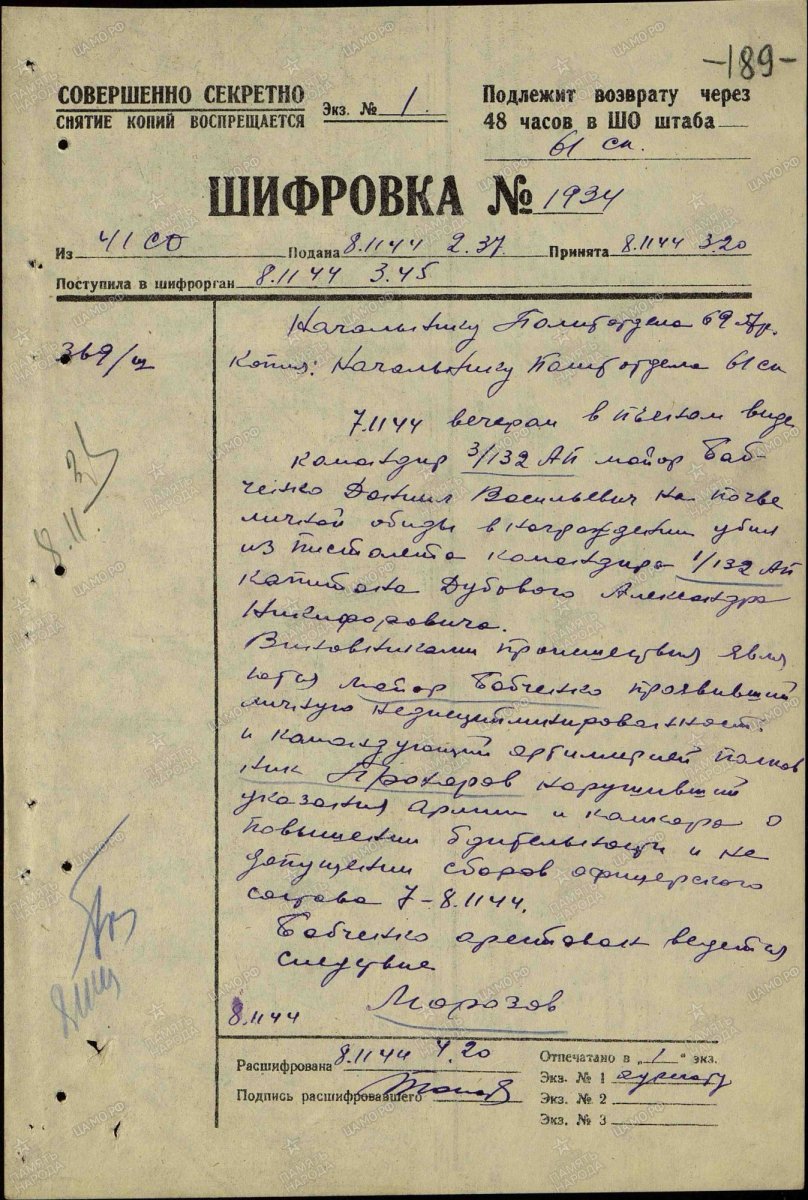 -189-
СОВЕРШЕННО СЕКРЕТНО
СНЯТИЕ КОПИЙ ВОСПРЕЩАЕТСЯ
Экз. № 1.
Подлежит возврату через
48 часов в ШО штаба
61 ск.
ШИФРОВКА № 1934
Из 41 СД Подана 8.11.44 2.37 Принята 8.11.44 3.20
Поступила в шифрорган 8.11.44 3.45
Начальнику Политотдела 69 Ар.
369/ш
Копия: Начальнику Политотдела 61 ск
7.11.44 вечером в пьяном виде
командир 3/132 АП майор Баб-
ченко Даниил Васильевич на почве
личной обиды в награждении убил
из пистолета командира 1/132 АП
капитана Дубового Александра
Никифоровича.
Виновниками происшествия явля
ются майор Бабченко проявивший
личную недисциплинированность
и командующий артиллерией полков
ник Прохоров нарушивший
указания армии и корпуса о
повышении бдительности и не
допущении сборов офицерского
состава 7-8.11.44.
Бабченко арестован ведется
следствие
Морозов
8.11.44
8.11.
Расшифрована 8.11.44 4.20
Подпись расшифровавшего
Отпечатано в „1" экз.
Экз. № 1 адресату
Экз. № 2
Экз. № 3